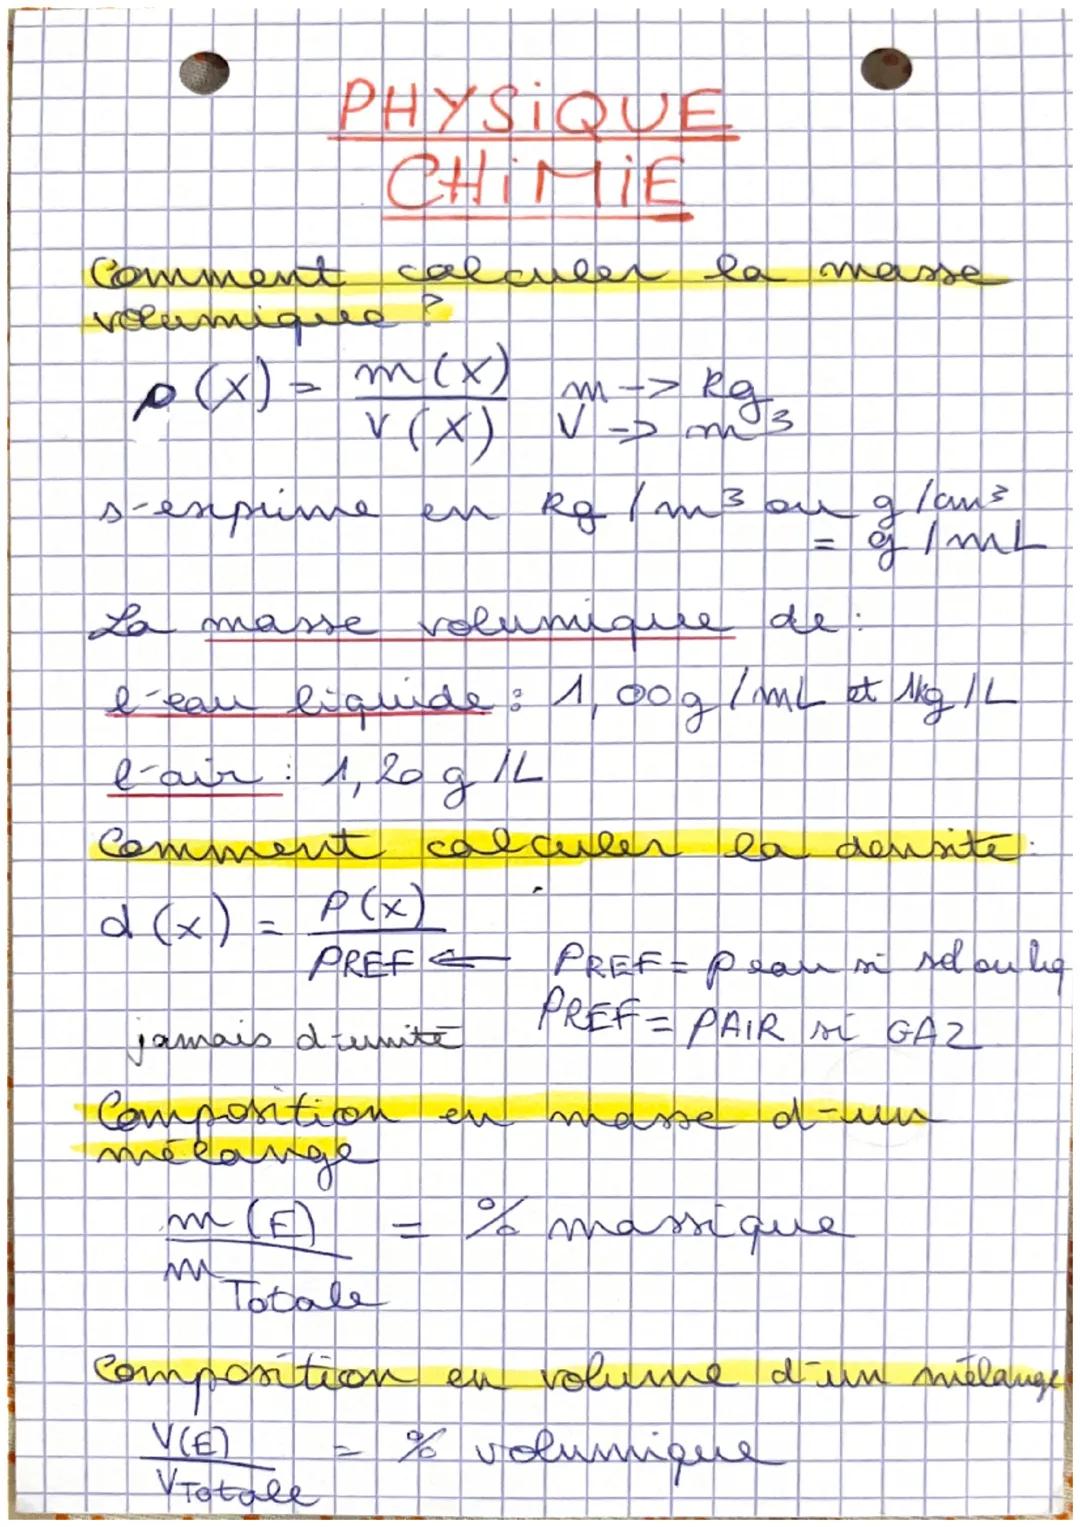 PHYSiQUE
CHiMiE
Comment calculer la masse
volumique ?
ρ(X) = m(X)/V(X) m -> kg
V -> m³
s'exprime en kg/m³ ou g/cm³
= g/mL
La masse volumique de :
l'eau liquide : 1,00g/mL et 1kg/L
l'air : 1,20 g/L
Comment calculer la densité :
d(x) = ρ(x)/ρREF ← ρREF = ρ eau si sol ou liq
jamais d'unité ρREF = ρAIR si GAZ
Composition en masse d'un
mélange
m(E)/m Totale = % massique
Composition en volume d'un mélange
V(E)/V Totale = % volumique